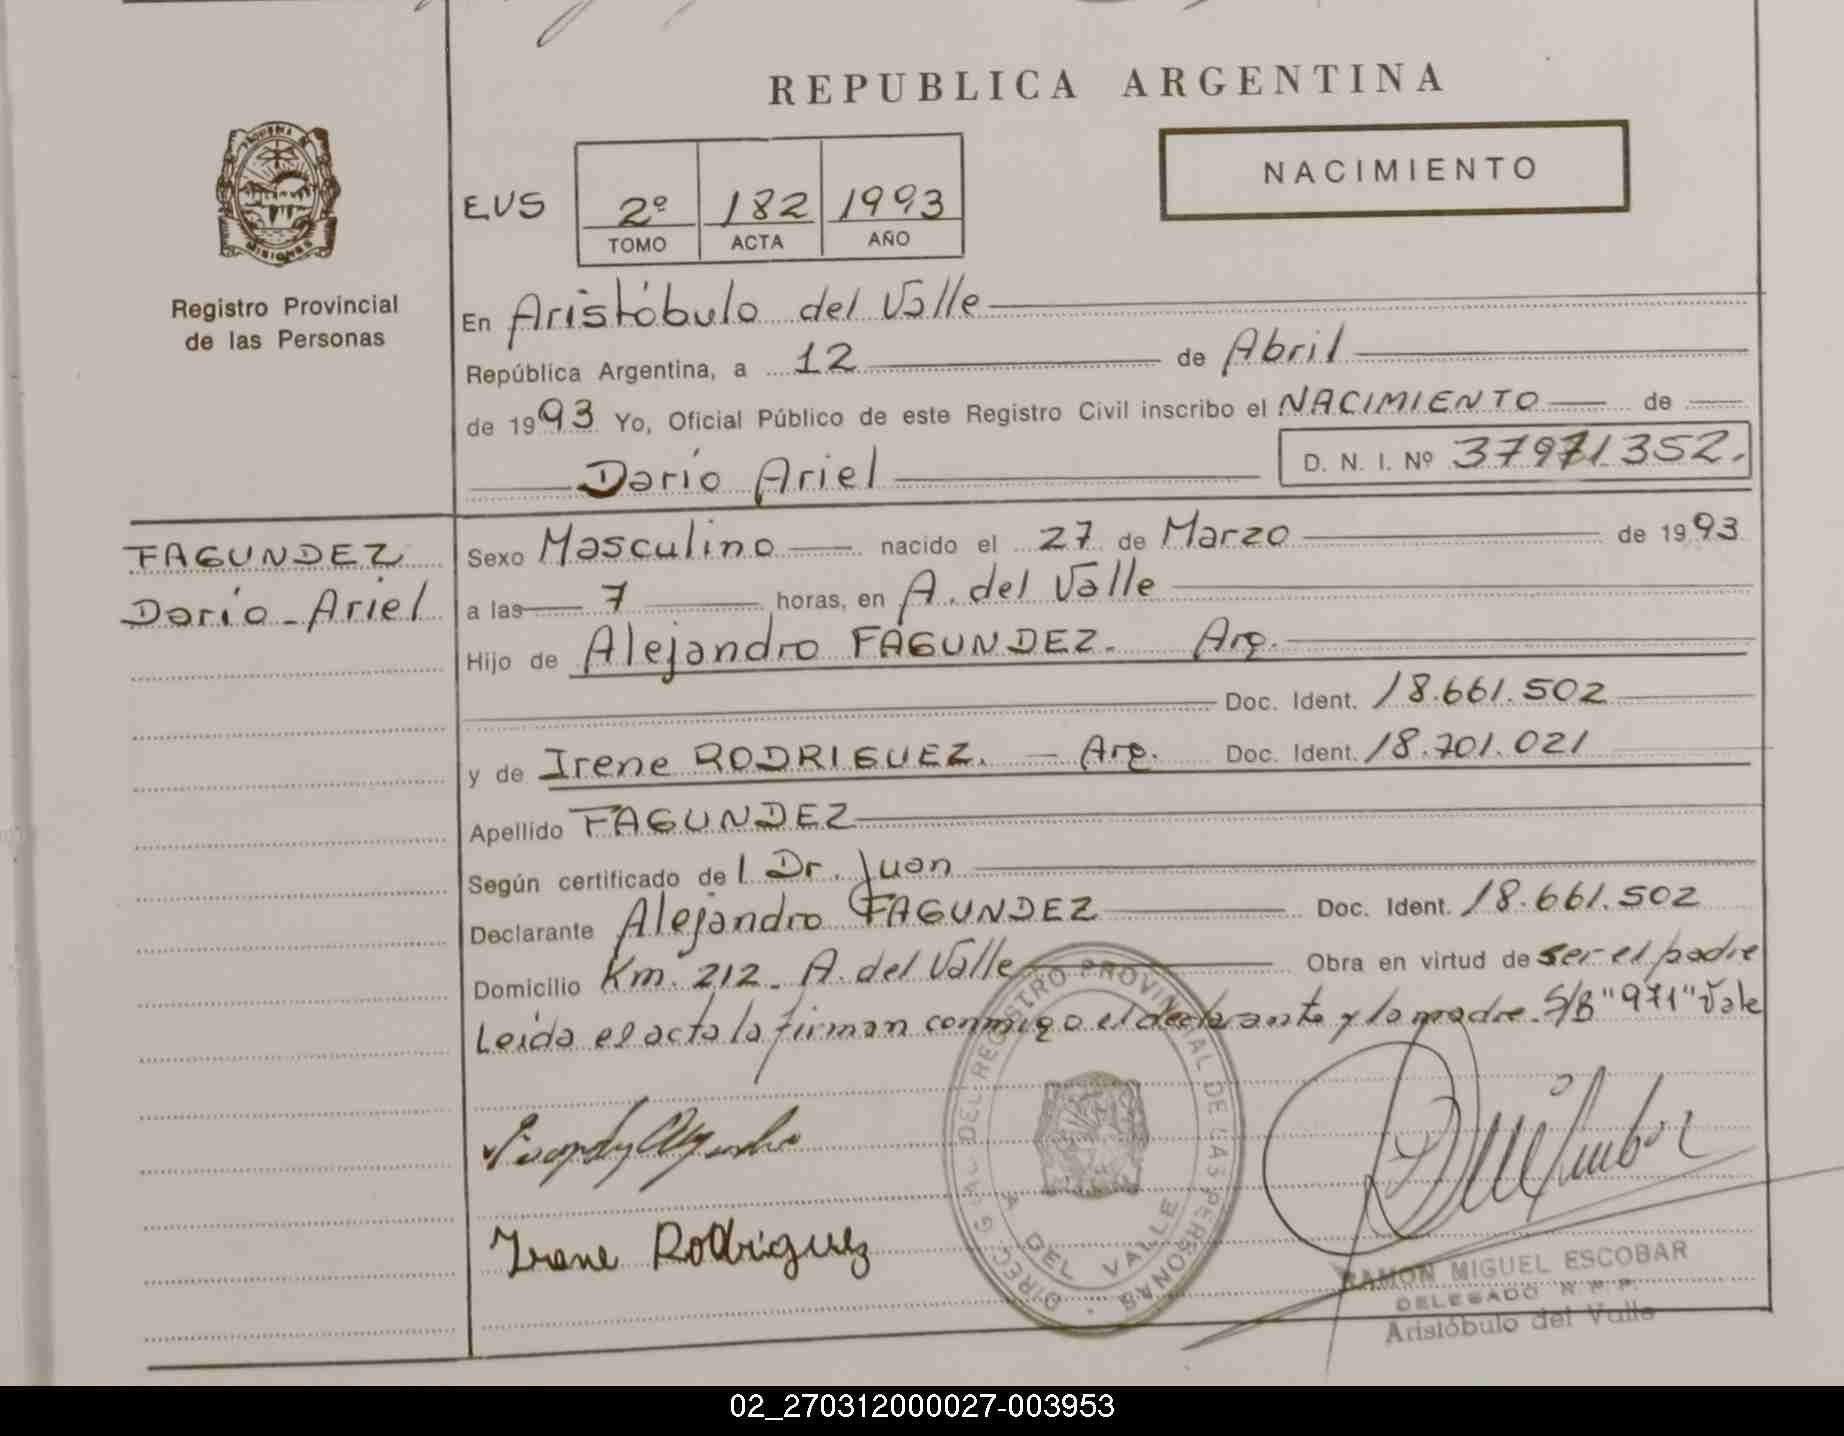 REPUBLICA ARGENTINA
NACIMIENTO
MISIONES
Registro Provincial
de las Personas
EUS 2º 182 1993
TOMO ACTA AÑO
En Aristóbulo del Valle
República Argentina, a 12 de Abril
de 1993 Yo, Oficial Público de este Registro Civil inscribo el NACIMIENTO de
Darío Ariel D. N. I. Nº 37971352.
FAGUNDEZ
Darío - Ariel
Sexo Masculino nacido el 27 de Marzo de 1993
a las 7 horas, en A. del Valle
Hijo de Alejandro FAGUNDEZ. Arg.
Doc. Ident. 18.661.502
y de Irene RODRIGUEZ. - Arg. Doc. Ident. 18.701.021
Apellido FAGUNDEZ
Según certificado del Dr. Juan
Declarante Alejandro FAGUNDEZ Doc. Ident. 18.661.502
Domicilio Km. 212 - A. del Valle Obra en virtud de ser el padre
Leida el acta la firman conmigo el declarante y la madre. S/B "971" Vale
Irene Rodriguez
DIREC. GRAL DEL REGISTRO PROVINCIAL DE LAS PERSONAS
A DEL VALLE
RAMON MIGUEL ESCOBAR
DELEGADO R.P.P.
Aristóbulo del Valle
02_270312000027-003953